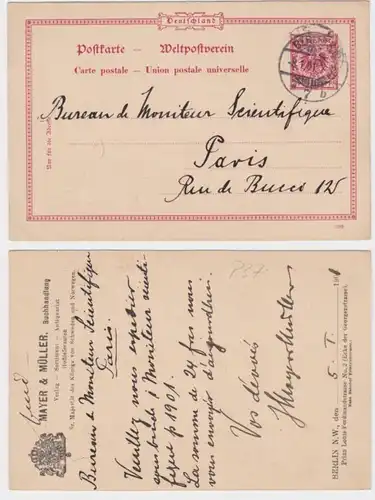 Deutschland
Postkarte – Weltpostverein
Carte postale – Union postale universelle
Bureau de Moniteur Scientifique
Paris
Rue de Bucci 12
MAYER & MÜLLER, Buchhandlung
Verlag – Sortiment – Antiquariat
Hoflieferanten
Sr. Majestät des Königs von Schweden und Norwegen.
BERLIN N.W., den 5. I. 1901
Prinz Louis-Ferdinandstrasse No. 2 (Ecke der Georgenstrasse).
Bureau de Moniteur Scientifique
Paris.
Veuillez nous expedier
sous bande 1 Moniteur scienti-
fique p 1901.
La somme de 24 frcs nous
vous envoyons d'aujourd'hui.
Vos dévoués
Mayer & Müller